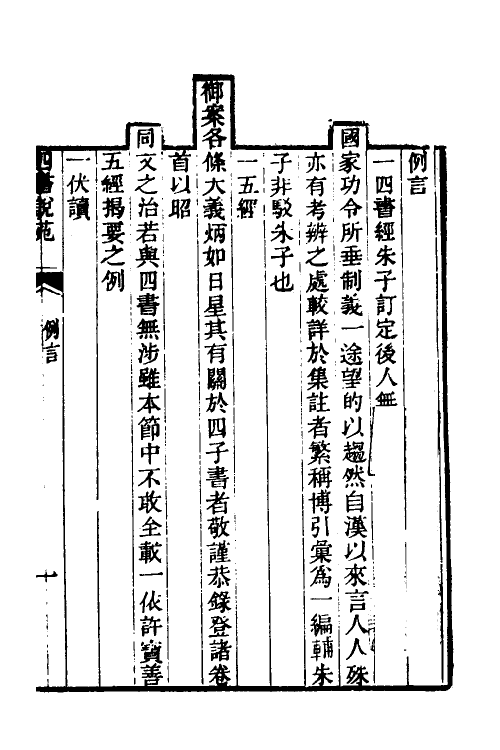 例言
一四書經朱子訂定後人無
國家功令所垂制義一途望的以趨然自漢以來言人人殊
亦有考辨之處較詳於集註者繁稱博引彙為一編輔朱
子非駁朱子也
一五經
御案各條大義炳如日星其有關於四子書者敬謹恭錄登諸卷
首以昭
同文之治若與四書無涉雖本節中不敢全載一依許寶善
五經揭要之例
一伏讀
四書說苑 例言 一